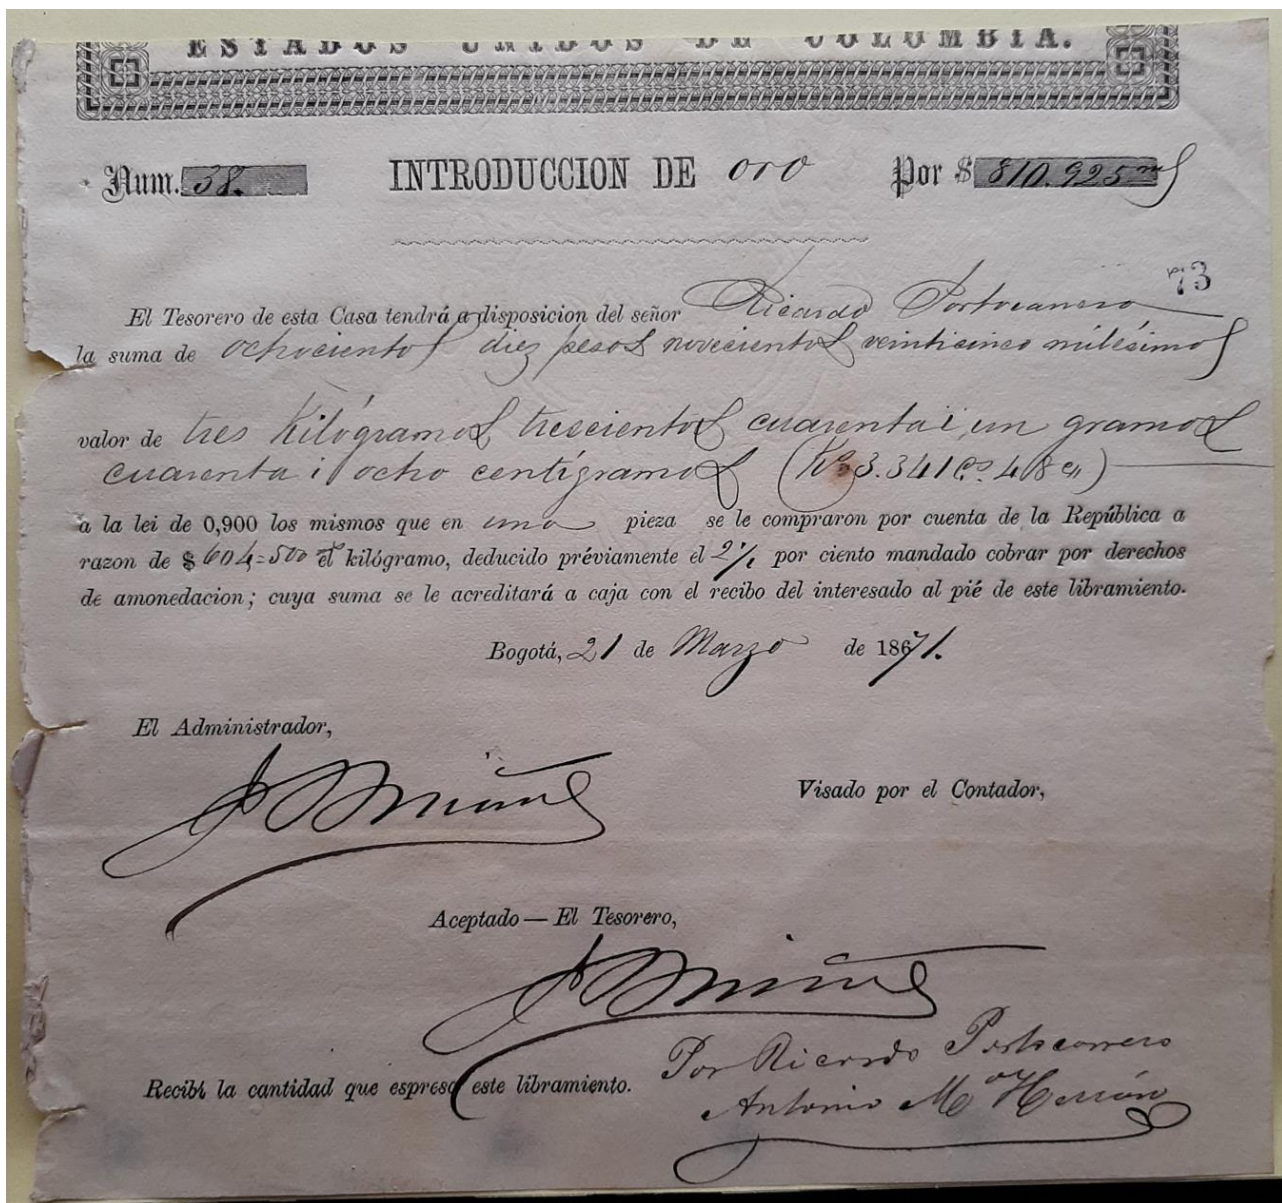 ESTADOS UNIDOS DE COLOMBIA.
Num. 38. INTRODUCCION DE oro Por $ 810.925 ms
73
El Tesorero de esta Casa tendrá a disposicion del señor Ricardo Portocarrero
la suma de ochocientos diez pesos novecientos veinticinco milésimos
valor de tres Kilógramos, trescientos cuarenta i un gramos
cuarenta i ocho centígramos (Ks 3.341 gs. 48 cs)
a la lei de 0,900 los mismos que en una pieza se le compraron por cuenta de la República a
razon de $ 604=500 el kilógramo, deducido préviamente el por ciento mandado cobrar por derechos
de amonedacion; cuya suma se le acreditará a caja con el recibo del interesado al pié de este libramiento.
Bogotá, 21 de Marzo de 1871.
El Administrador,
Visado por el Contador,
Aceptado — El Tesorero,
Por Ricardo Portocarrero
Recibí la cantidad que espresa este libramiento.
Antonio Ma Herrán